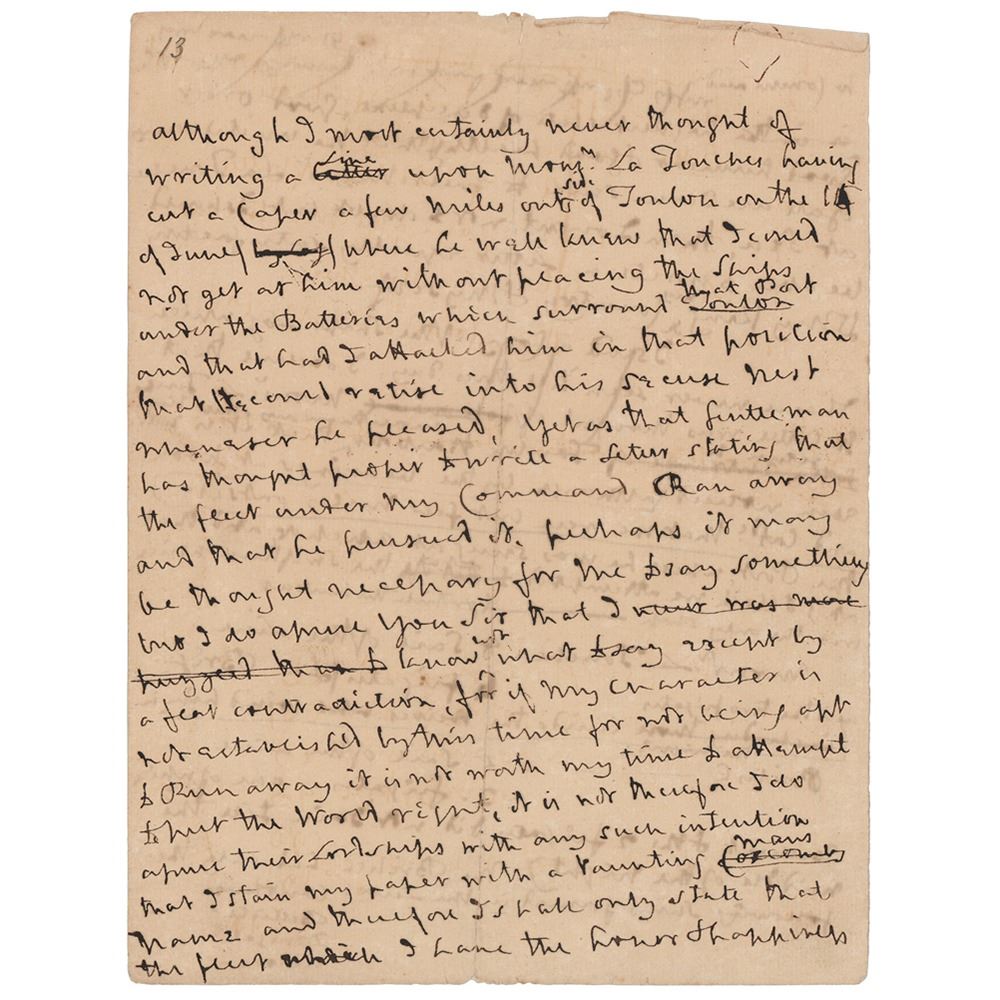 13
although I most certainly never thought of
writing a ~~letter~~ Line upon Monsr. La Touches having
cut a Caper a few Miles outside of Toulon on the 14
of June where he well knew that I could
not get at him without placing the Ships
under the Batteries which surround ~~Toulon~~ that Port
and that had I attacked him in that position
that He could retire into his secure nest
whenever he pleased, yet as that Gentleman
has thought proper to write a Letter stating that
the fleet under my Command Ran away
and that he pursued it, perhaps it may
be thought necessary for me to say something
but I do assure you Sir that I ~~never was more~~
~~puzzled than to~~ know not what to say except by
a flat contradiction, for if my Character is
not established by this time for not being apt
to Run away it is not worth my time to attempt
to put the World right, it is not therefore I do
assure their Lordships with any such intention
that I stain my paper with a Vaunting ~~Coxcombs~~ mans
name and therefore I shall only state that
the fleet ~~which~~ I have the honor & happiness